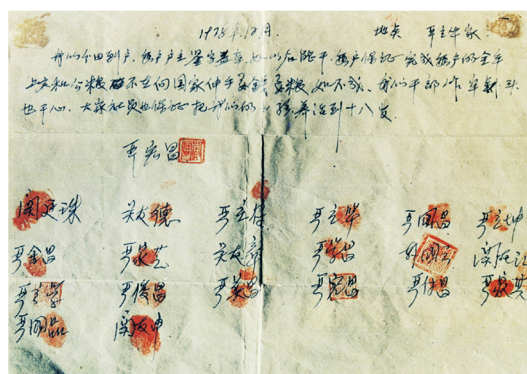 1978年12月 地点 严立华家
我们分田到户,每户户主签字盖章,如以后能干,每户保证完成每户的全年
上交和公粮不在向国家伸手要钱要粮,如不成,我们干部作牢刹头
也干心,大家社员也保证把我们的小孩养活到十八岁.
严宏昌
关廷珠 关友德 严立付 严立华 严国昌 严立坤
严金昌 严家芝 关友章 严学昌 韩国云 关友江
严立学 严俊昌 严美昌 严宏昌 严付昌 严家其
严国品 关友申